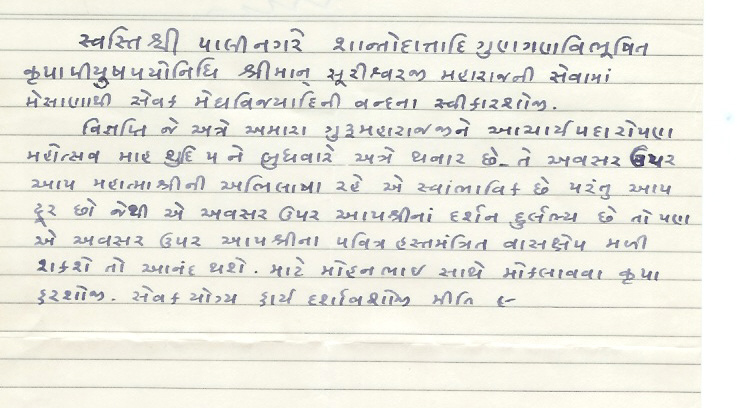 સ્વસ્તિ શ્રી પાલીનગરે શાન્તોદાત્તાદિ ગુણગણવિભૂષિત
કૃપાપીયુષપયોનિધિ શ્રીમાન્ સૂરીશ્વરજી મહારાજની સેવામાં
મેસાણાથી સેવક મેઘવિજયાદિની વન્દના સ્વીકારશોજી.
વિજ્ઞપ્તિ જે અત્રે અમારા ગુરૂમહારાજજીને આચાર્યપદારોપણ
મહોત્સવ માહ શુદિ ૫ ને બુધવારે અત્રે થનાર છે- તે અવસર ઉપર
આપ મહાત્માશ્રીની અભિલાષા રહે એ સ્વાભાવિક છે પરંતુ આપ
દૂર છો જેથી એ અવસર ઉપર આપશ્રીનાં દર્શન દુર્લભ્ય છે તો પણ
એ અવસર ઉપર આપશ્રીના પવિત્ર હસ્તમંત્રિત વાસક્ષેપ મળી
શકશે તો આનંદ થશે. માટે મોહનભાઇ સાથે મોકલાવવા કૃપા
કરશોજી. સેવક યોગ્ય કાર્ય દર્શાવશોજી મીતિ